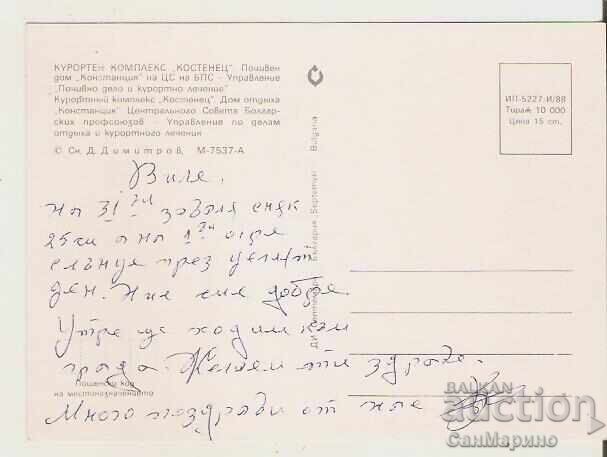 КУРОРТЕН КОМПЛЕКС „КОСТЕНЕЦ". Почивен
дом „Констанция" на ЦС на БПС - Управление
„Почивно дело и курортно лечение"
Курортный комплекс „Костенец". Дом отдыха
„Констанция" Центрального Совета Болгар-
ских профсоюзов Управление по делам
отдыха и курортного лечения
© Сн. Д. Димитров, М-7537-А
ИП-5227-И/88
Тираж 10 000
Цена 15 ст.
ДИ „Септември" България Bulgaria
Виле,
на 31 заваля сняк
25 см а на 1 огря
слънце през целият
ден. Ние сме добре
Утре ще ходим към
града. Желаем ти здраве.
Много поздрави от нас
Пощенски код
на местоназначението
BALKAN
auction
СанМарино